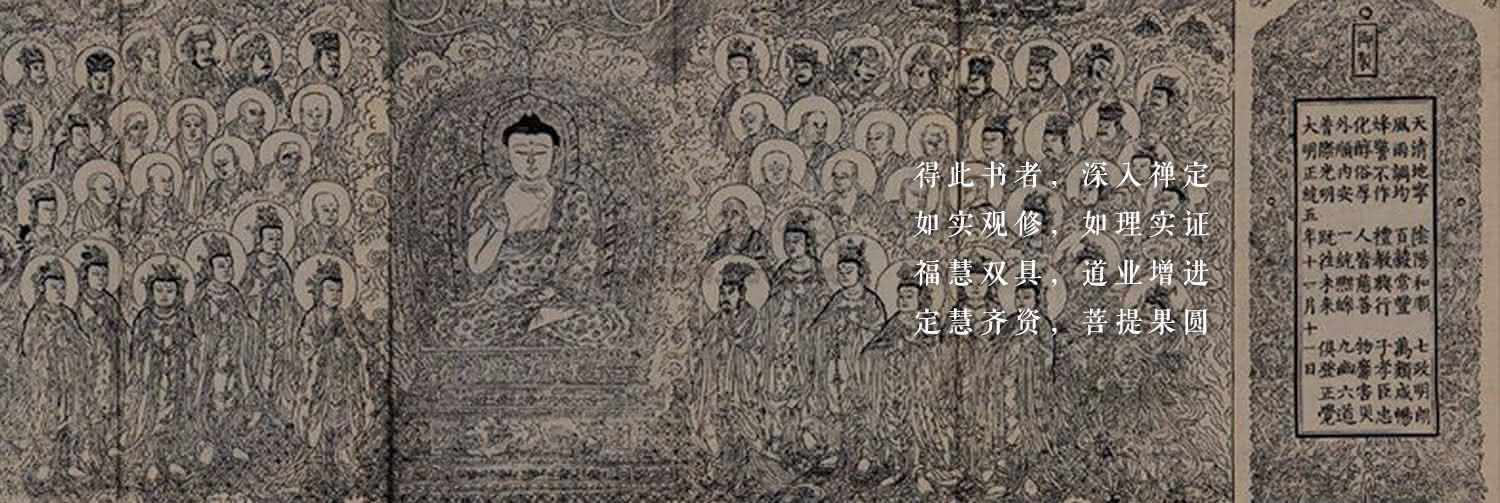 得此书者，深入禅定
如实观修，如理实证
福慧双具，道业增进
定慧齐资，菩提果圆
御製
天清地寧 陰陽和順 七政明朗
風雨調均 百穀常豐 萬類咸暢
烽警不作 禮教興行 子孝臣忠
化醇俗厚 人皆慈善 物靡害災
外順內安 一統熙皞 九幽六道
普際光明 既往未來 俱登正覺
大明正統五年十一月十一日